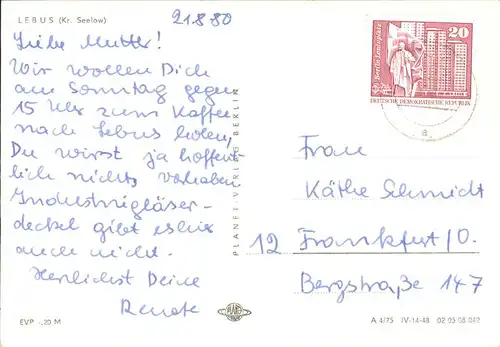 LEBUS (Kr. Seelow)
21.8.80
Liebe Mutter!
Wir wollen Dich
am Sonntag gegen
15 Uhr zum Kaffee
nach Lebus holen,
Du wirst ja hoffent-
lich nichts vorhaben
Industriegläser-
deckel gibt es hier
auch nicht.
Herzlichst Deine
Renate
EVP -,20 M
PLANET VERLAG BERLIN
PLANET
20
Berlin, Leninplatz
DEUTSCHE DEMOKRATISCHE REPUBLIK
a
Frau
Käthe Schmidt
12 Frankfurt/O.
Bergstraße 147
A 4/75 IV-14-48 02 05 08 042